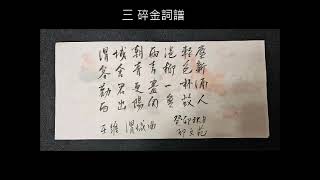 三 碎金詞譜
渭城朝雨浥輕塵
客舍青青柳色新
勸君更盡一杯酒
西出陽關無故人
王維 渭城曲
癸卯秋月